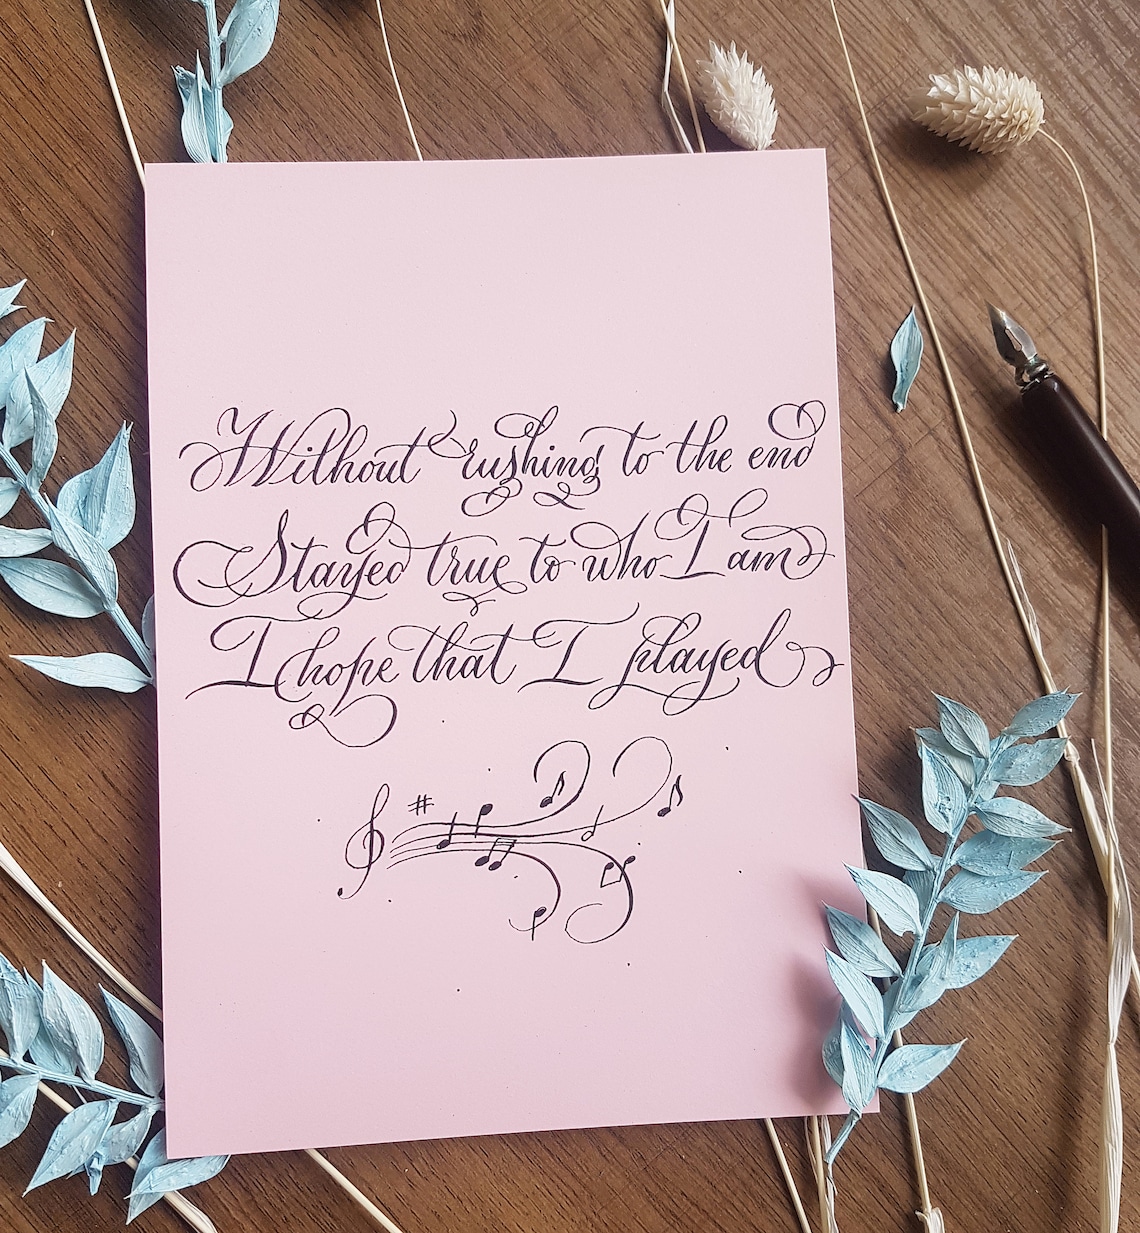 Without rushing to the end
Stayed true to who I am
I hope that I played